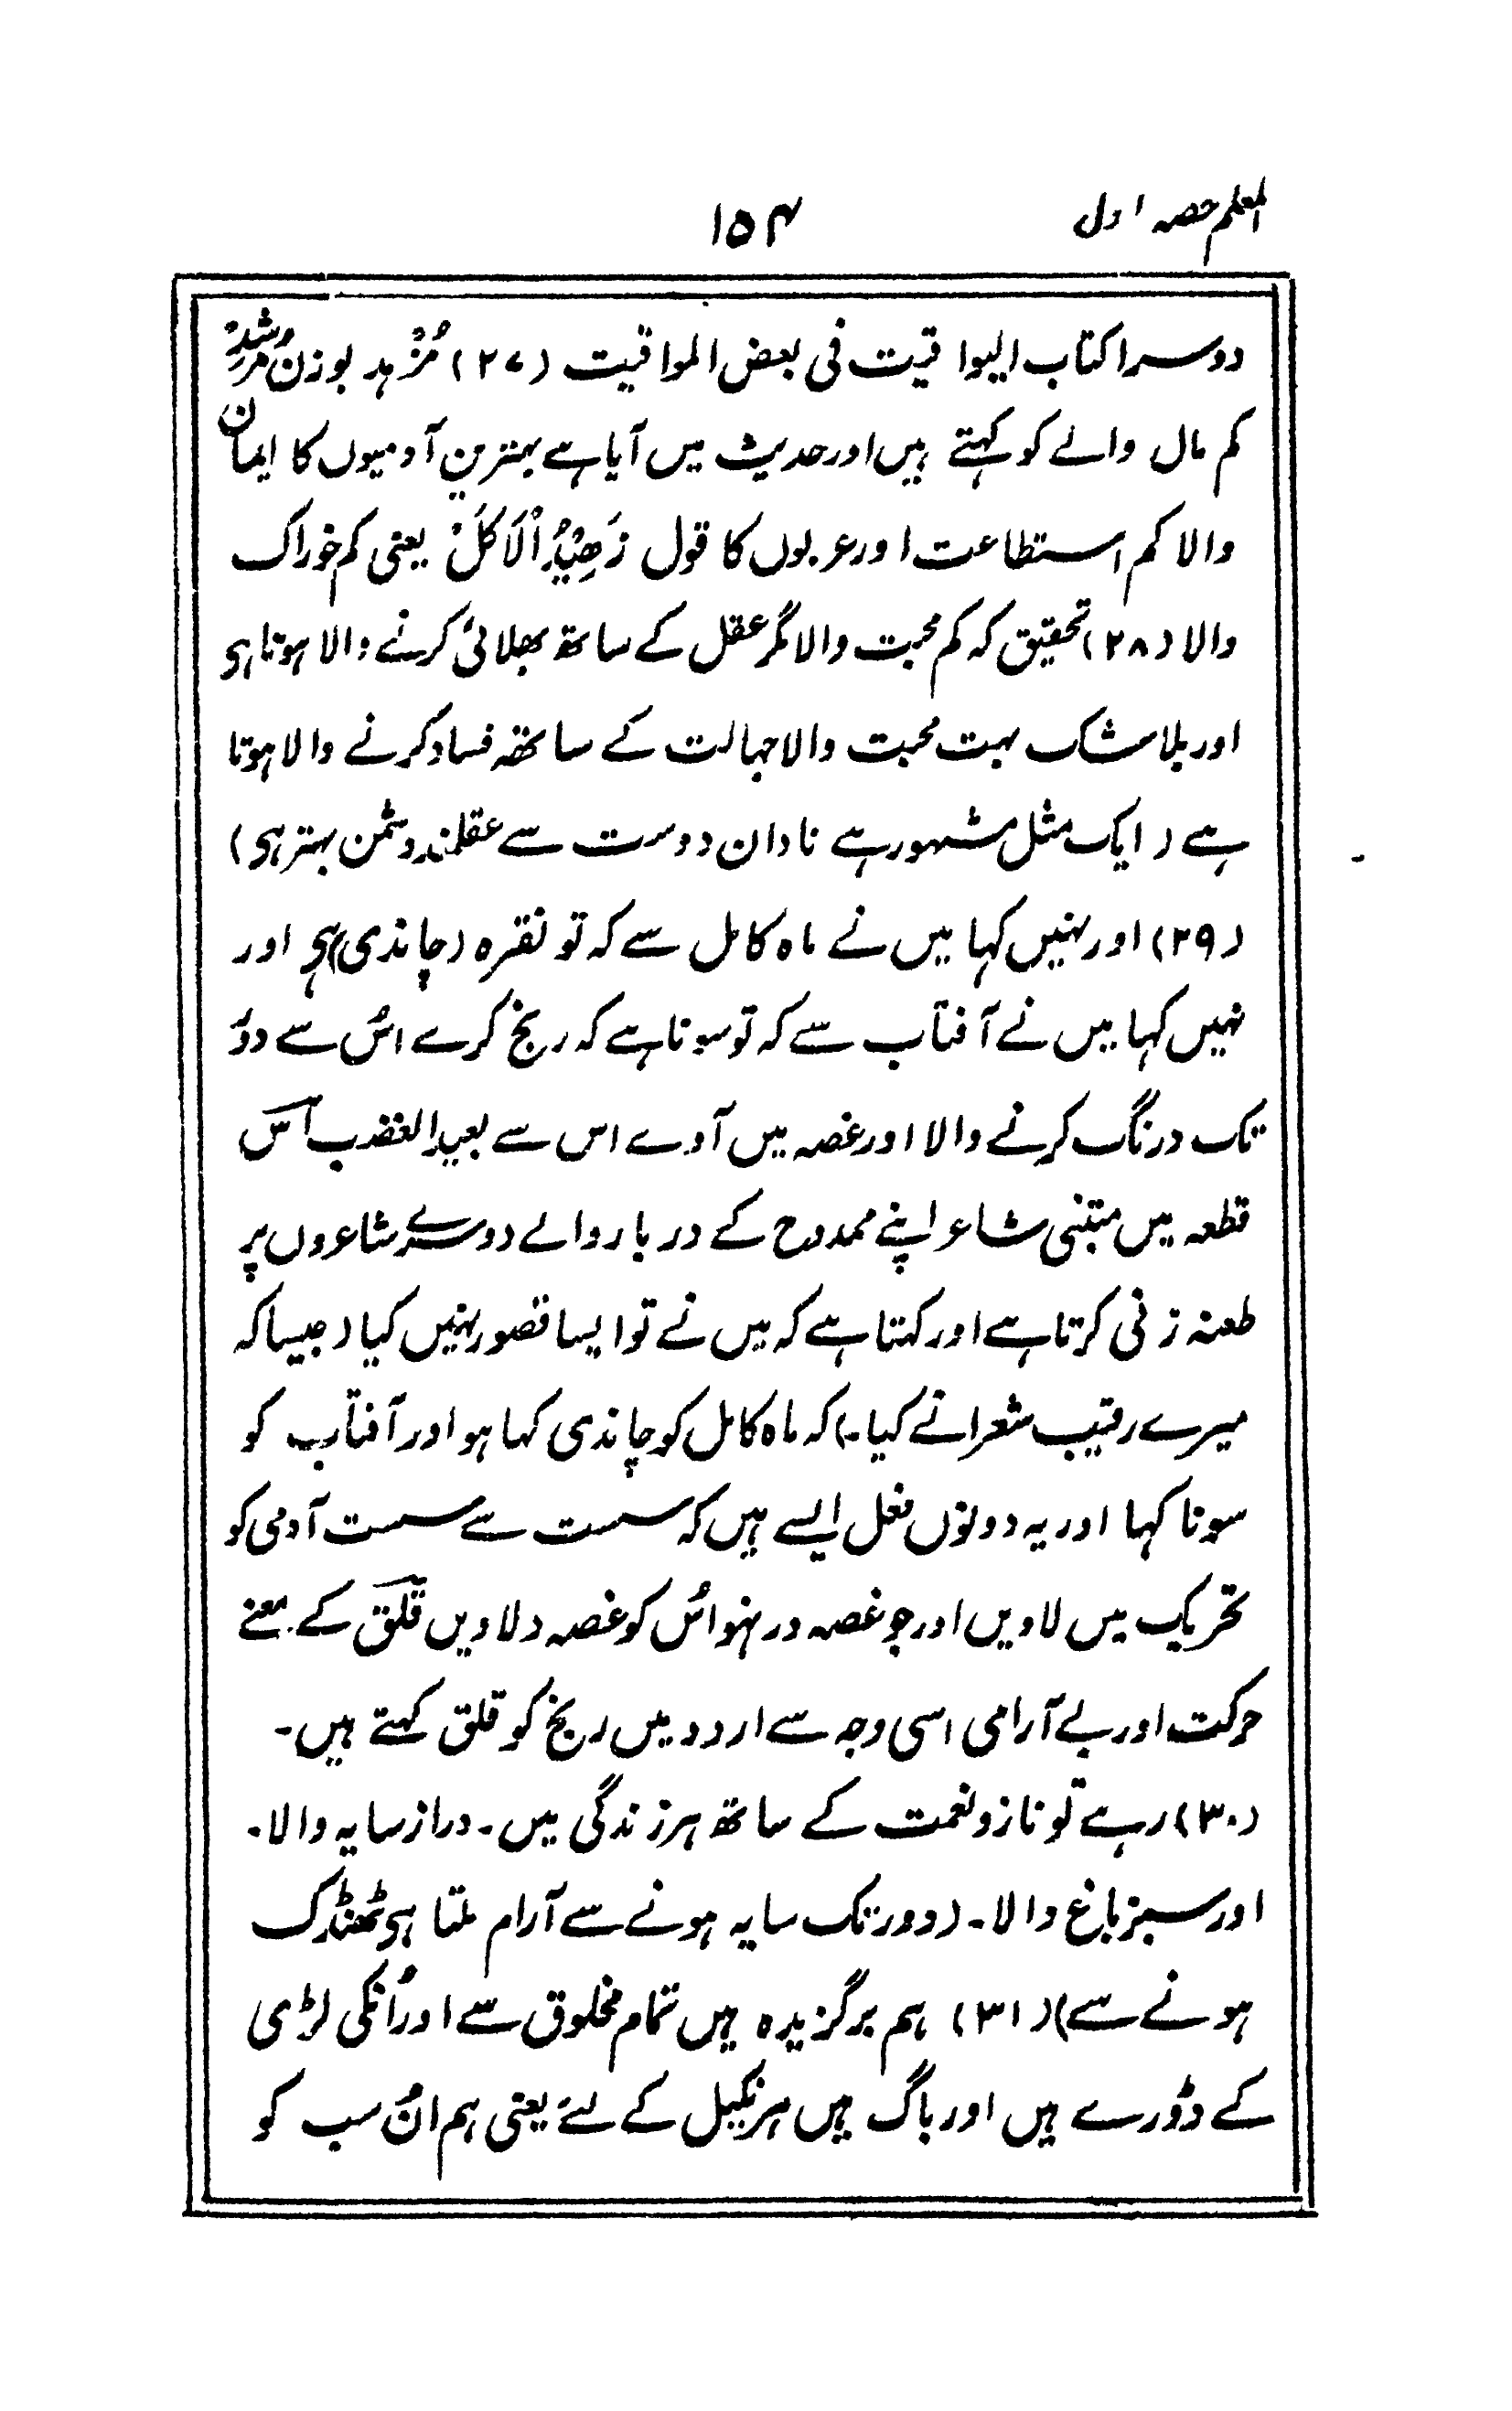 المعلم حصہ اول
۱۵۴
دوسرا کتاب الیواقیت فی بعض المواقیت (۲۷) مُزْہد بوزن مُرْشِدْ
کم مال والے کو کہتے ہیں اور حدیث میں آیا ہے بہترین آدمیوں کا ایمان
والا کم استطاعت اور عربوں کا قول زَھِیْدُ اْلاَکَلْ یعنی کم خوراک
والا (۲۸) تحقیق کہ کم محبت والا مگر عقل کے ساتھ بھلائی کرنے والا ہوتا ہی
اور بلاشک بہت محبت والا جہالت کے ساتھ فساد کرنے والا ہوتا
ہے (ایک مثل مشہور ہے نادان دوست سے عقلمند دشمن بہتر ہی)
(۲۹) اور نہیں کہا میں نے ماہ کامل سے کہ تو نقرہ (چاندی) ہی اور
نہیں کہا میں نے آفتاب سے کہ تو سونا ہے کہ رنج کرے اُس سے دوُ
تک درنگ کرنے والا اور غصہ میں آوے اس سے بعید الغضب اس
قطعہ میں متبنی شاعر اپنے ممدوح کے دربار والے دوسرے شاعروں پر
طعنہ زنی کرتا ہے اور کہتا ہے کہ میں نے تو ایسا قصور نہیں کیا (جیسا کہ
میرے رقیب شعرا نے کیا۔) کہ ماہ کامل کو چاندی کہا ہو اور آفتاب کو
سونا کہا اور یہ دونوں فعل ایسے ہیں کہ سست سے سست آدمی کو
تحریک میں لاویں اور جو غصہ ور نہو اُس کو غصہ دلاویں قلق کے معنے
حرکت اور بے آرامی اسی وجہ سے اردو میں رنج کو قلق کہتے ہیں۔
(۳۰) رہے تو ناز و نعمت کے ساتھ ہر زندگی میں۔ دراز سایہ والا۔
اور سبز باغ والا۔ (دور تک سایہ ہونے سے آرام ملتا ہی ٹھنڈک
ہونے سے) (۳۱) ہم برگزیدہ ہیں تمام مخلوق سے اور اُنکی لڑی
کے ڈورے ہیں اور باگ ہیں ہر نکیل کے لئے یعنی ہم اُن سب کو